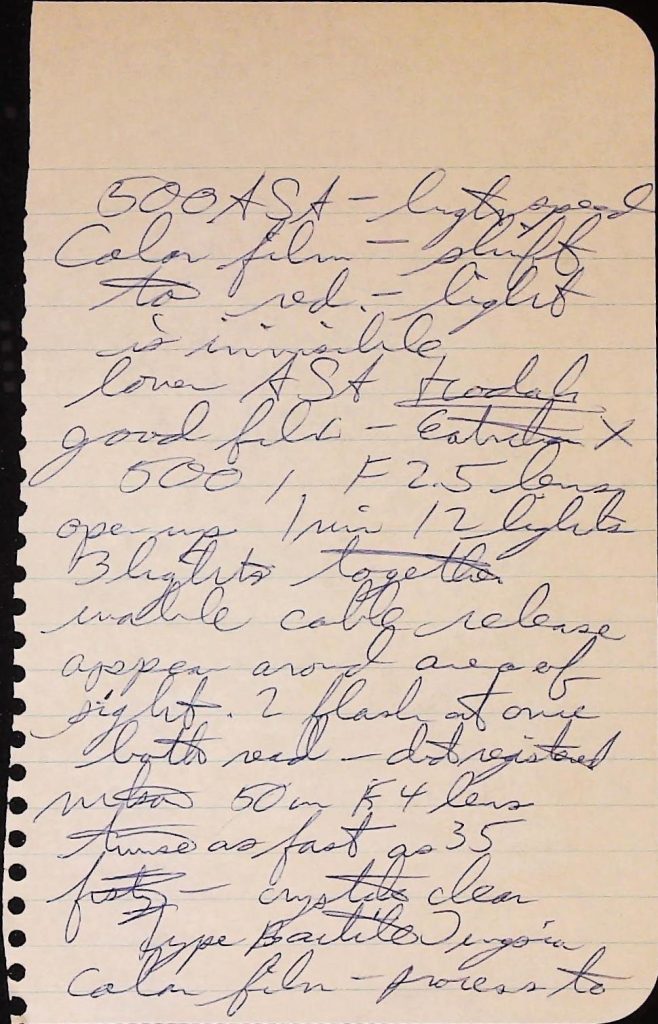 500 ASA - light speed
Color film - shift
to red. - light
is invisible
lower ASA Kodak
good film - X
500, F 2.5 lens
open up 1 min 12 lights
3 lights together
unable cable release
appear around area of
sight. 2 flash at once
both read - didt registered
50 m F 4 lens
twise as fast as 35
- crystal clear
type
Color film - process to